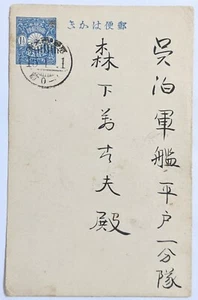 郵便はかき
呉泊軍艦平戸一分隊
森下夫殿